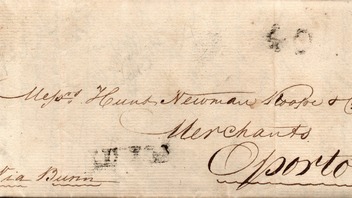 40
Messrs Hunt Newman Roope & C
Merchants
Oporto
Via